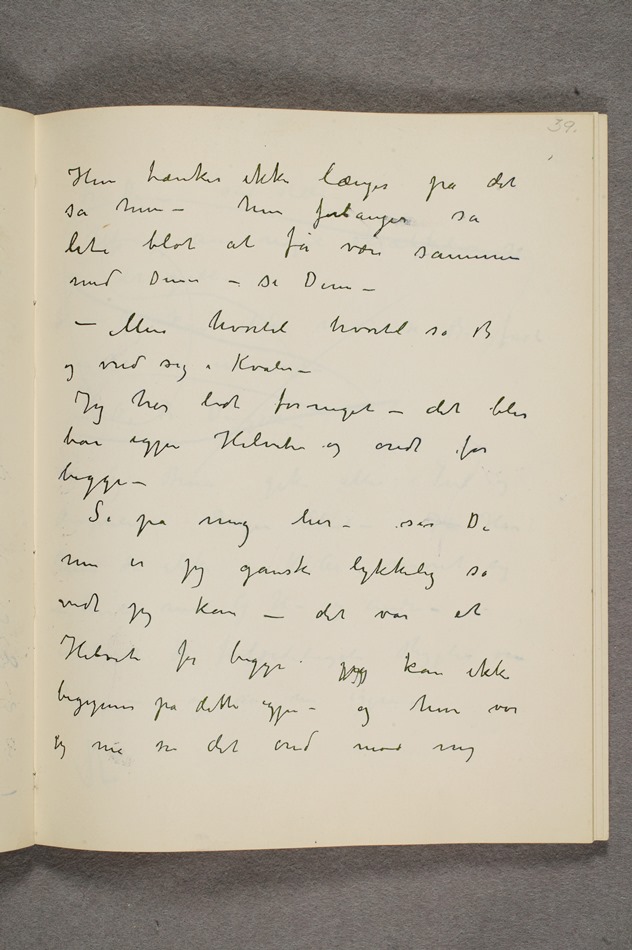 39.
Hun tænker ikke længer på det
sa hun – hun forlanger så
lite blot at få være sammen
med Dem – se Dem –
– Men hvortil hvortil sa B
og vred sig i Kvaler –
Jeg har lidt formeget – det blir
bare igjen Helvete og ondt for
begge –
Se på mig her – sier De
nu er jeg ganske lykkelig så
vidt jeg kan – det var et
Helvete for begge. jeg kan ikke
begynne på dette igjen – og hun var
jeg må si det ond mod mig